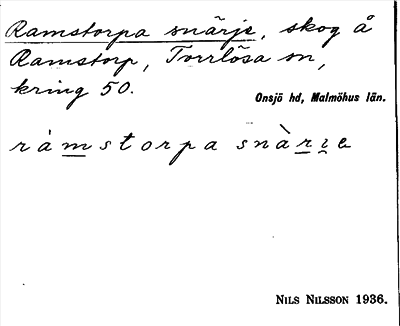 Ramstorpa snärje, skog å
Ramstorp, Torrlösa sn,
kring 50.
Onsjö hd, Malmöhus län.
ràmstorpa snàrı̯e
NILS NILSSON 1936.